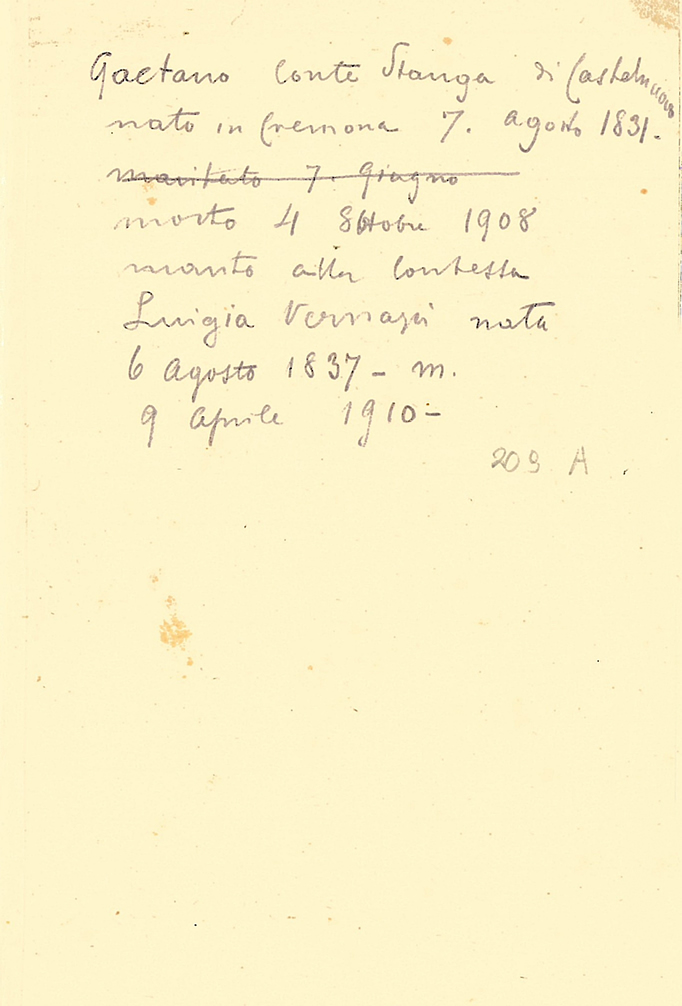 Gaetano Conte Stanga di Castelnuovo
nato in Cremona 7. Agosto 1831.
maritato 7. Giugno
morto 4 Ottobre 1908
marito alla Contessa
Luigia Vernazzi nata
6 Agosto 1837 - m.
9 Aprile 1910 -
209 A.